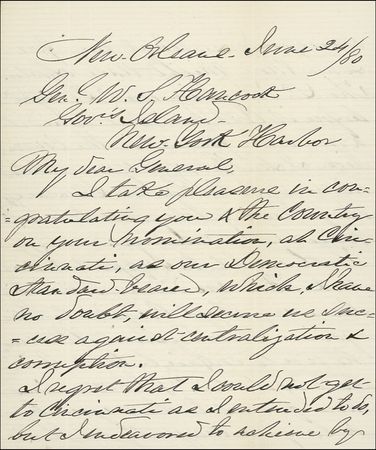 New Orleans June 24/80
Genl W. S. Hancock
Gov's Island
New York Harbor
My dear General,
I take pleasure in con-
=gratulating you & the Country
on your nomination, at Cin-
cinnati, as our Democratic
Standard-bearer, which, I have
no doubt, will secure us suc-
=cess against centralization &
corruption.
I regret that I could not get
to Cincinnati as I intended to do,
but I endeavored to achieve by